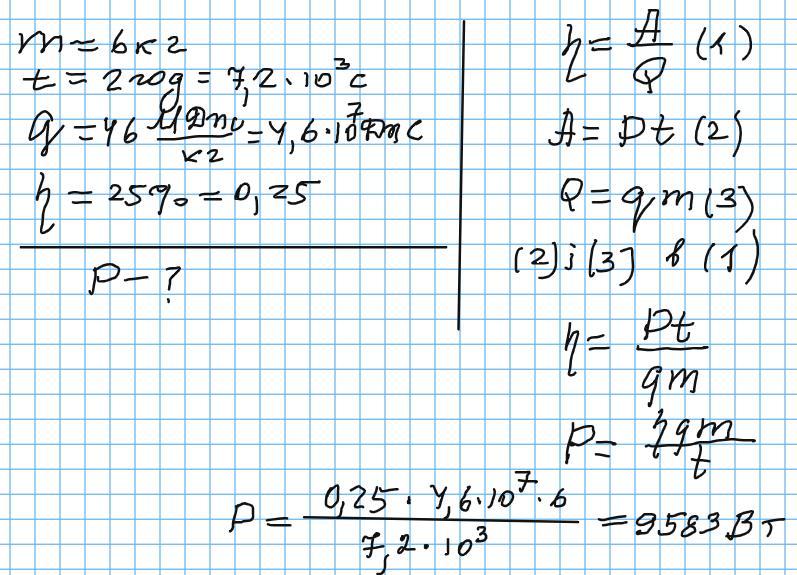 m = 6кг
t = 2 год = 7,2·10³с
q = 46 МДж/кг = 4,6·10⁷Дж
η = 25% = 0,25
P - ?
η = A/Q (1)
A = Pt (2)
Q = qm (3)
(2) і (3) в (1)
η = Pt/qm
P = ηqm/t
P = 0,25·4,6·10⁷·6/7,2·10³ = 9583 Вт